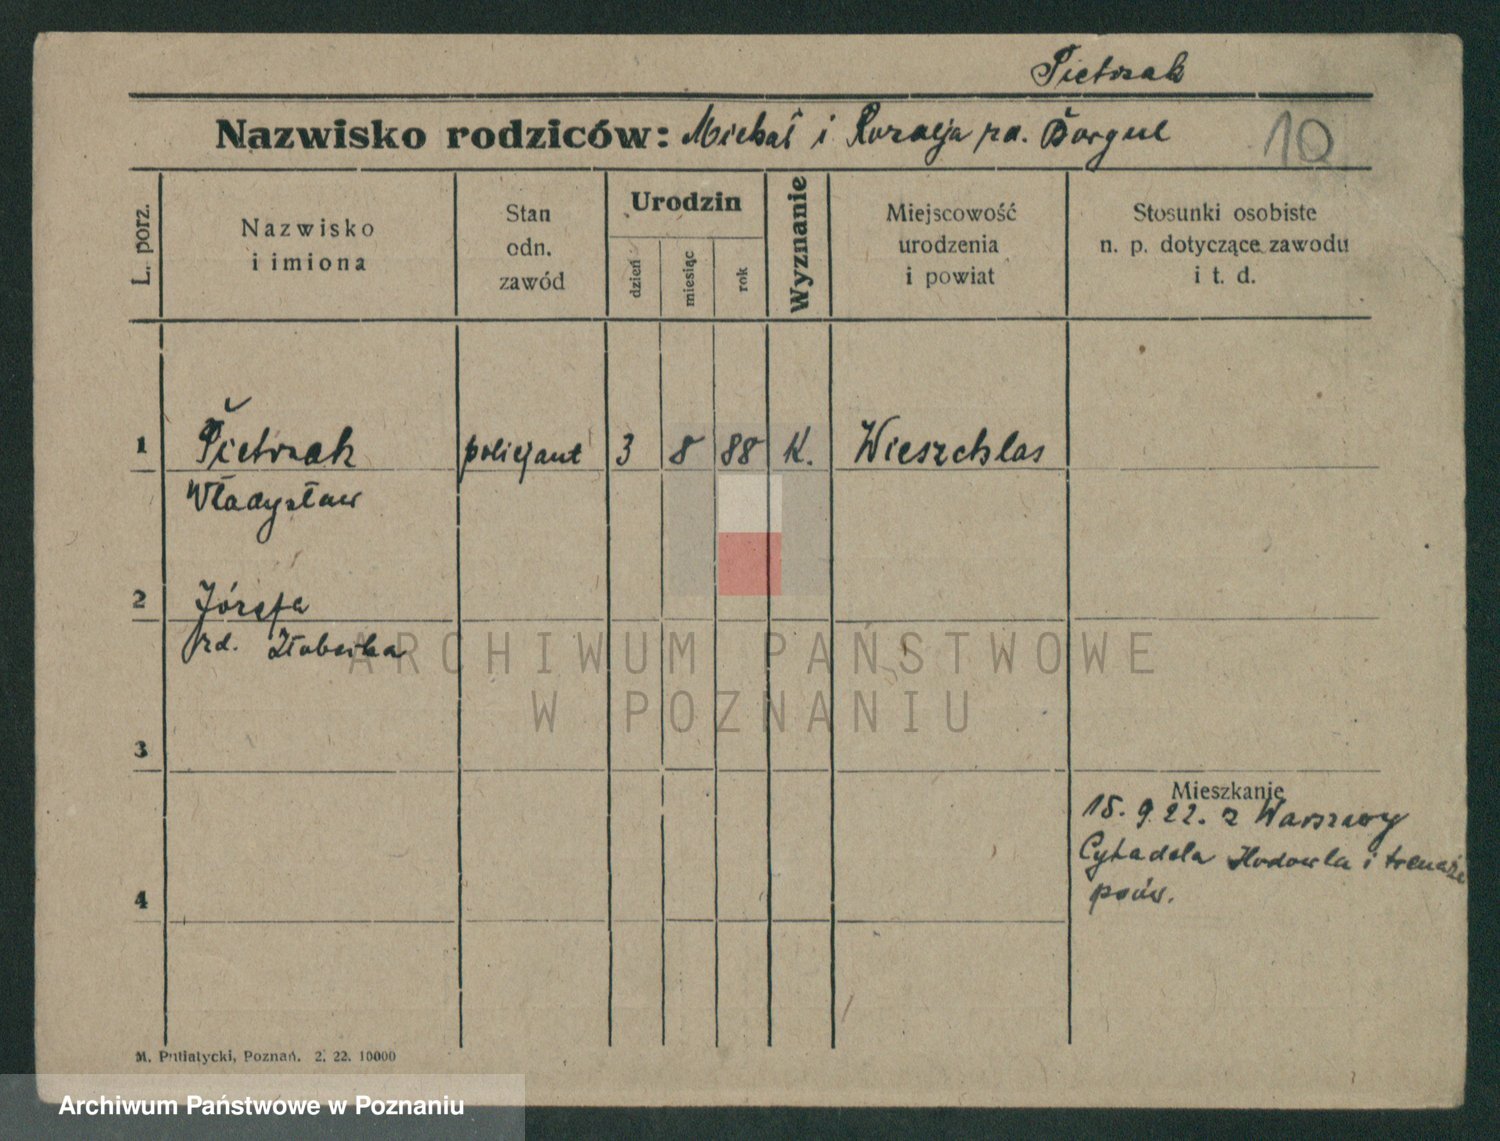 Pietrzak
Nazwisko rodziców: Michał i Rozalja rd. Borgul
10
L. porz.
Nazwisko
i imiona
Stan
odn.
zawód
Urodzin
dzień
miesiąc
rok
Wyznanie
Miejscowość
urodzenia
i powiat
Stosunki osobiste
n. p. dotyczące zawodu
i t. d.
1 Pietrzak policjant 3 8 88 K. Wieszchlas
Władysław
2 Józefa
rd.
ARCHIWUM PAŃSTWOWE
W POZNANIU
3
Mieszkanie
15. 9. 22. z Warszawy
Cytadela Hodowla i
psów.
4
M. Putiatycki, Poznań. 2. 22. 10000
Archiwum Państwowe w Poznaniu